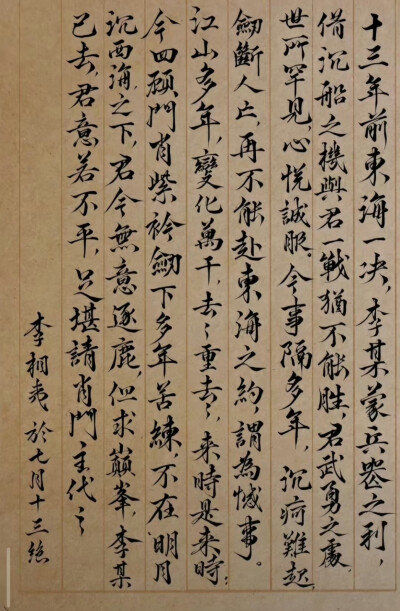 十三年前東海一决，李某蒙兵器之利，
借沉船之機與君一戰猶不能勝，君武勇之處，
世所罕見，心悦誠服，今事隔多年，沉疴難起，
劍斷人亡，再不能赴東海之約，謂為憾事。
江山多年，變化萬千，去々重去々，来時是来時；
今四顾門肖紫衿劍下多年苦練，不在明月
沉西海之下，君今無意逐鹿，但求巔峯，李某
已去，君意若不平，足堪請肖門主代之
李相夷於七月十三絶